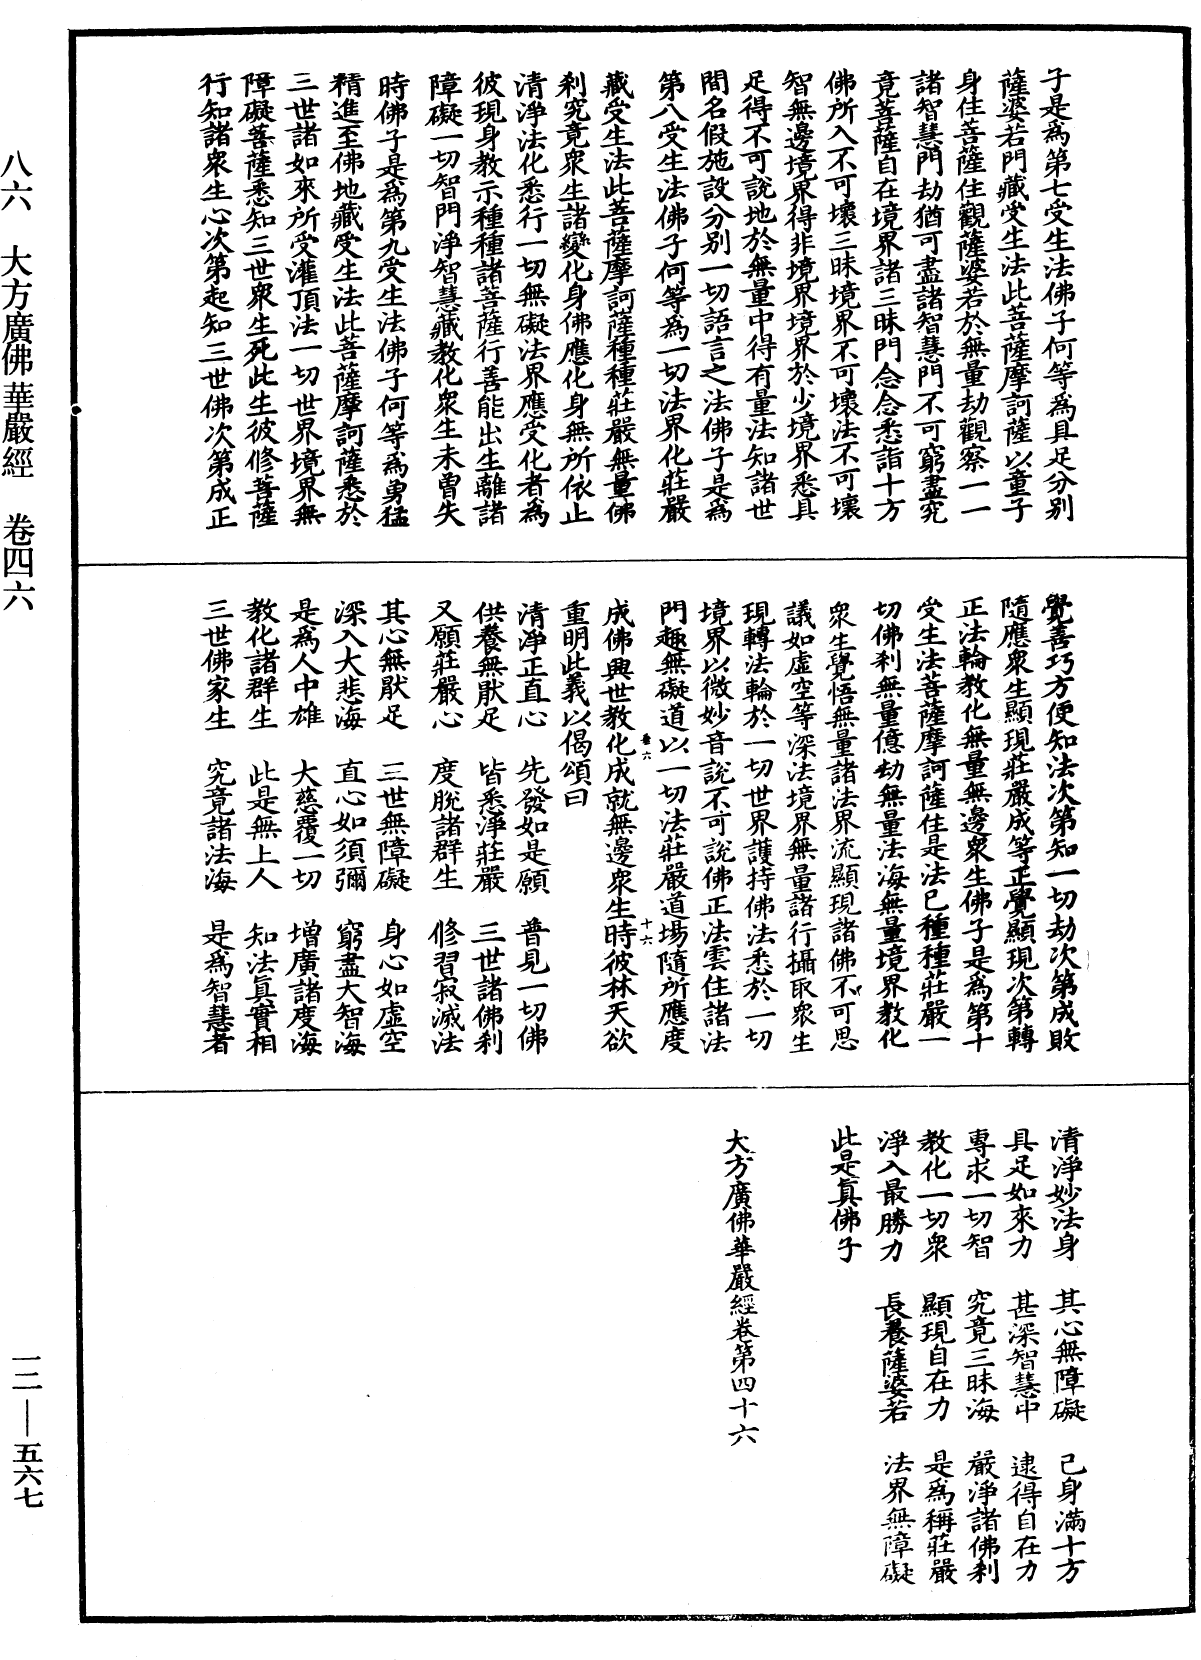 子是為第七受生法佛子何等為具足分別
薩婆若門藏受生法此菩薩摩訶薩以童子
身住菩薩住觀薩婆若於無量劫觀察一一
諸智慧門劫猶可盡諸智慧門不可窮盡究
竟菩薩自在境界諸三昧門念念悉詣十方
佛所入不可壞三昧境界不可壞法不可壞
智無邊境界得非境界境界於少境界悉具
足得不可說地於無量中得有量法知諸世
間名假施設分别一切語言之法佛子是為
第八受生法佛子何等為一切法界化莊嚴
藏受生法此菩薩摩訶薩種種莊嚴無量佛
刹究竟衆生諸變化身佛應化身無所依止
清淨法化悉行一切無礙法界應受化者為
彼現身教示種種諸菩薩行善能出生離諸
障礙一切智門淨智慧藏教化衆生未曾失
時佛子是為第九受生法佛子何等為勇猛
精進至佛地藏受生法此菩薩摩訶薩悉於
三世諸如來所受灌頂法一切世界境界無
障礙菩薩悉知三世衆生死此生彼修菩薩
行知諸衆生心次第起知三世佛次第成正
覺善巧方便知法次第知一切劫次第成敗
隨應衆生顯現莊嚴成等正覺顯現次第轉
正法輪教化無量無邊衆生佛子是為第十
受生法菩薩摩訶薩住是法已種種莊嚴一
切佛刹無量億劫無量法海無量境界教化
衆生覺悟無量諸法界流顯現諸佛不可思
議如虛空等深法境界無量諸行攝取衆生
現轉法輪於一切世界護持佛法悉於一切
境界以微妙音說不可說佛正法雲住諸法
門趣無礙道以一切法莊嚴道場隨所應度
成佛興世教化成就無邊衆生時彼林天欲
重明此義以偈頌曰
清淨正直心　先發如是願　普見一切佛
供養無猒足　皆悉淨莊嚴　三世諸佛刹
又願莊嚴心　度脫諸群生　修習寂滅法
其心無猒足　三世無障礙　身心如虛空
深入大悲海　直心如須彌　窮盡大智海
是為人中雄　大慈覆一切　增廣諸度海
教化諸群生　此是無上人　知法真實相
三世佛家生　究竟諸法海　是為智慧者
清淨妙法身　其心無障礙　己身滿十方
具足如來力　甚深智慧中　逮得自在力
專求一切智　究竟三昧海　嚴淨諸佛刹
教化一切衆　顯現自在力　是為稱莊嚴
淨入最勝力　長養薩婆若　法界無障礙
此是真佛子
大方廣佛華嚴經卷第四十六
八六　大方廣佛華嚴經　卷四六
一二—五六七